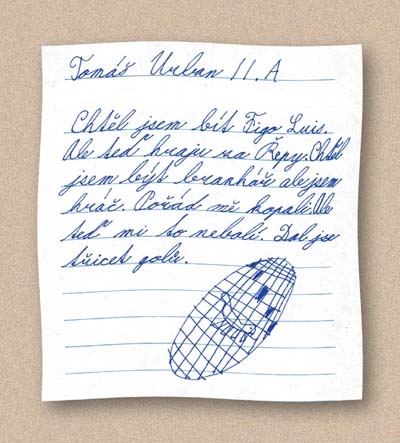 Tomáš Urban II.A
Chtěl jsem bít Figo Luis.
Ale teď hraju za Řepy. Chtěl
jsem být branhář ale jsem
hráč. Pořád mě kopali. Ale
teď mi to neboli. Dal jse
třicet golů.